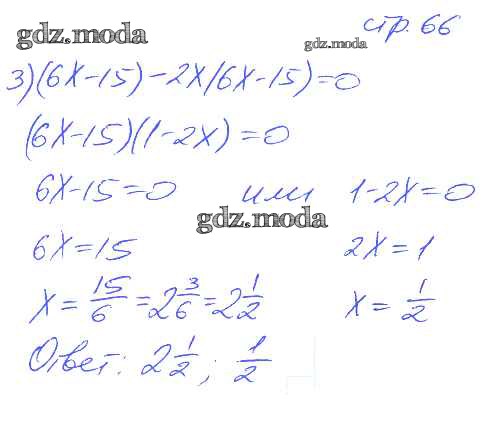 стр. 66
gdz.moda
gdz.moda
3) (6x-15)-2x(6x-15)=0
(6x-15)(1-2x)=0
6x-15=0 или 1-2x=0
gdz.moda
6x=15 2x=1
x=15/6=2 3/6=2 1/2 x=1/2
Ответ: 2 1/2; 1/2